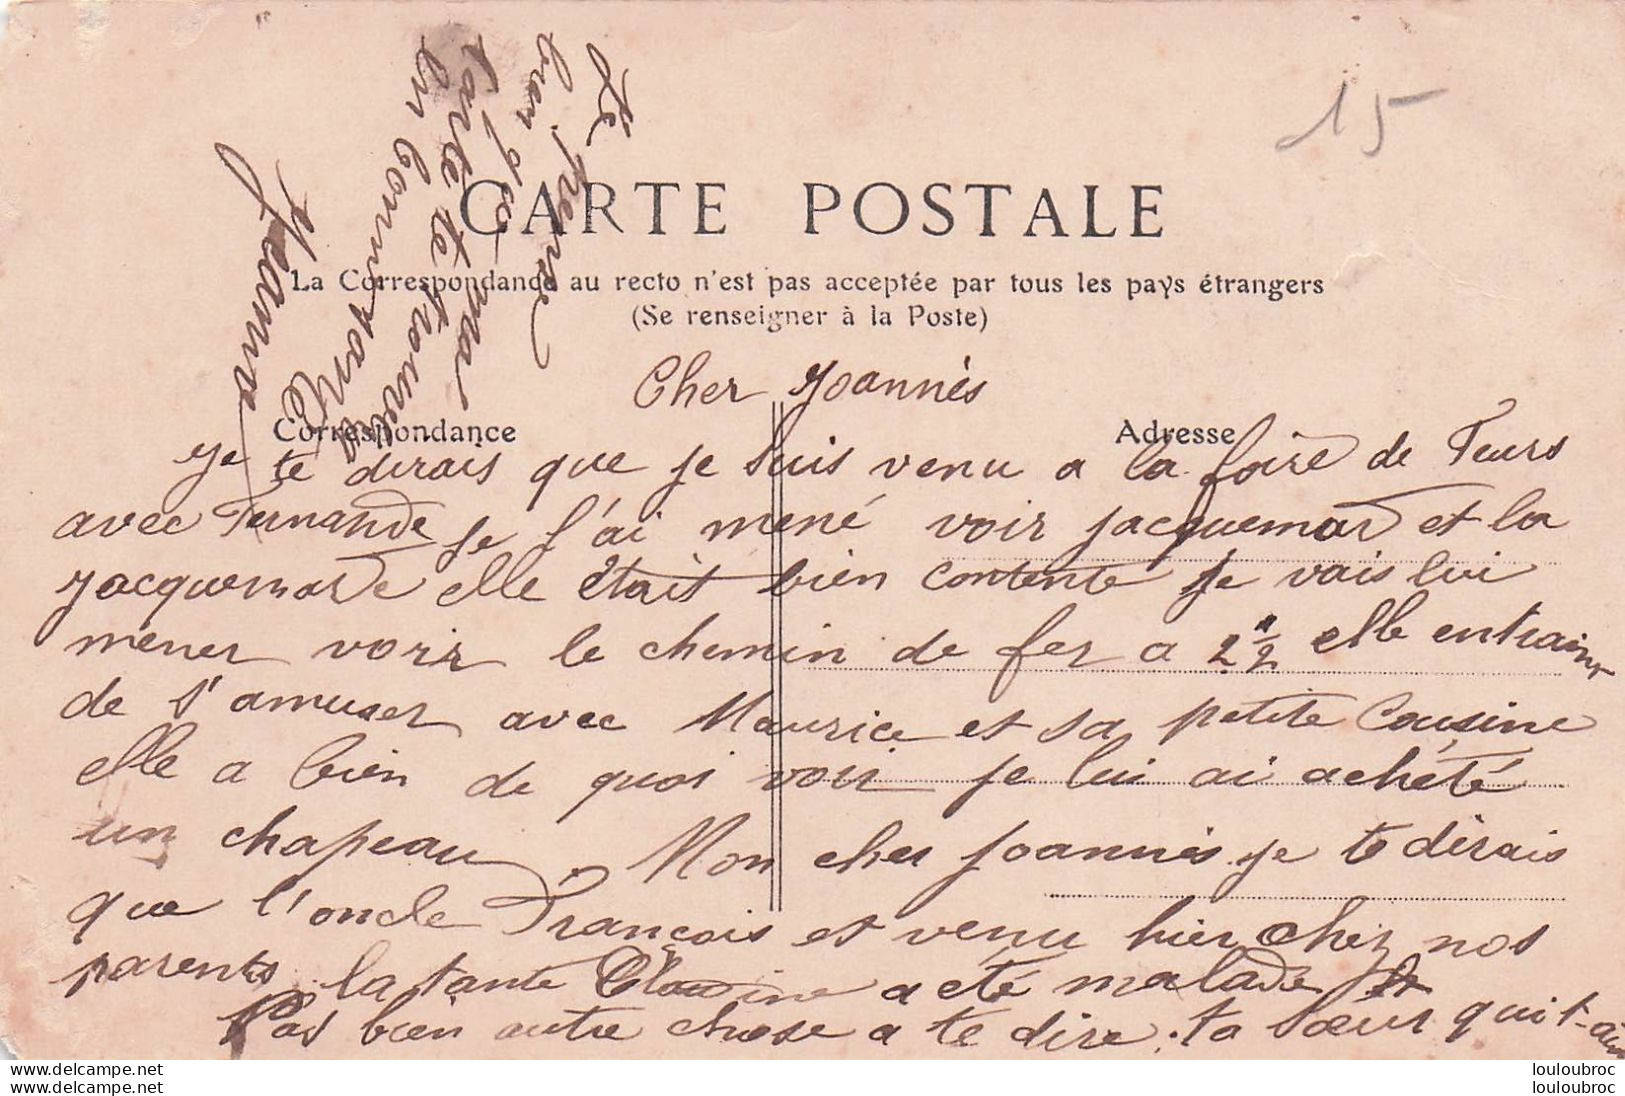 15
CARTE POSTALE
La Correspondance au recto n'est pas acceptée par tous les pays étrangers
(Se renseigner à la Poste)
Correspondance
Adresse
Cher Joannès
Je te dirais que je suis venu a la foire de Feurs
avec Fernande je l'ai mené voir jacquemard et la
jacquemarde elle était bien contente je vais lui
mener voir le chemin de fer a 2 1/2 elle entrain
de s'amuser avec Maurice et sa petite Cousine
elle a bien de quoi voir je lui ai acheté
un chapeau. Mon cher Joannès je te dirais
que l'oncle François et venu hier chez nos
parents la tante Claudine a été malade
Pas bien autre chose a te dire. ta sœur qui t'aime
Je pense
bien que ma
carte te trouvera
en bonne santé
Jeanne
louloubroc
www.delcampe.net
louloubroc
www.delcampe.net
louloubroc